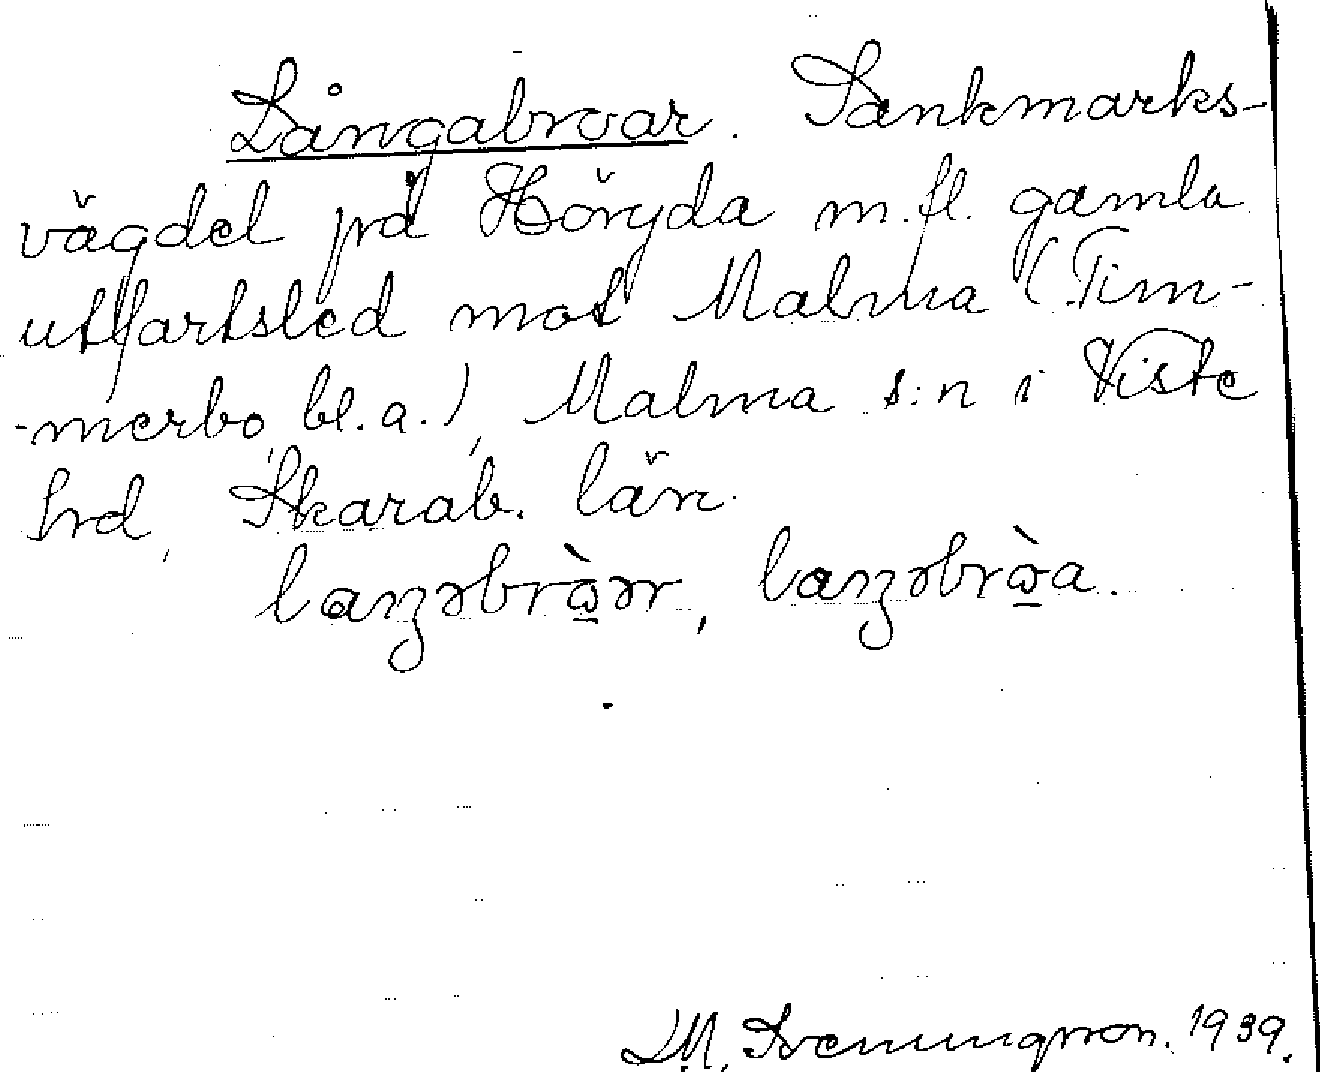 Långabroar. Sankmarks-
vägdel på Höryda m.fl. gamla
utfartsled mot Malma (Tim-
-merbo, bl.a.), Malma s:n i Viste
hrd, Skarab. län.
laŋəbrὼər, laŋəbrὼa.
M. Sveningsson. 1939.